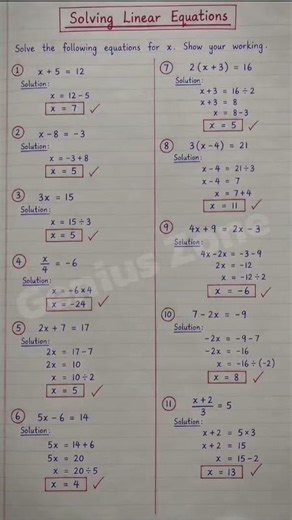 Solving Linear Equations
Solve the following equations for x. Show your working.
① x + 5 = 12
Solution:
x = 12 - 5
x = 7 ✓
② x - 8 = -3
Solution:
x = -3 + 8
x = 5 ✓
③ 3x = 15
Solution:
x = 15 ÷ 3
x = 5 ✓
④ x/4 = -6
Solution:
x = -6 × 4
x = -24 ✓
⑤ 2x + 7 = 17
Solution:
2x = 17 - 7
2x = 10
x = 10 ÷ 2
x = 5 ✓
⑥ 5x - 6 = 14
Solution:
5x = 14 + 6
5x = 20
x = 20 ÷ 5
x = 4 ✓
⑦ 2(x + 3) = 16
Solution:
x + 3 = 16 ÷ 2
x + 3 = 8
x = 8 - 3
x = 5 ✓
⑧ 3(x - 4) = 21
Solution:
x - 4 = 21 ÷ 3
x - 4 = 7
x = 7 + 4
x = 11 ✓
⑨ 4x + 9 = 2x - 3
Solution:
4x - 2x = -3 - 9
2x = -12
x = -12 ÷ 2
x = -6 ✓
⑩ 7 - 2x = -9
Solution:
-2x = -9 - 7
-2x = -16
x = -16 ÷ (-2)
x = 8 ✓
⑪ x + 2 / 3 = 5
Solution:
x + 2 = 5 × 3
x + 2 = 15
x = 15 - 2
x = 13 ✓
Genius Zone